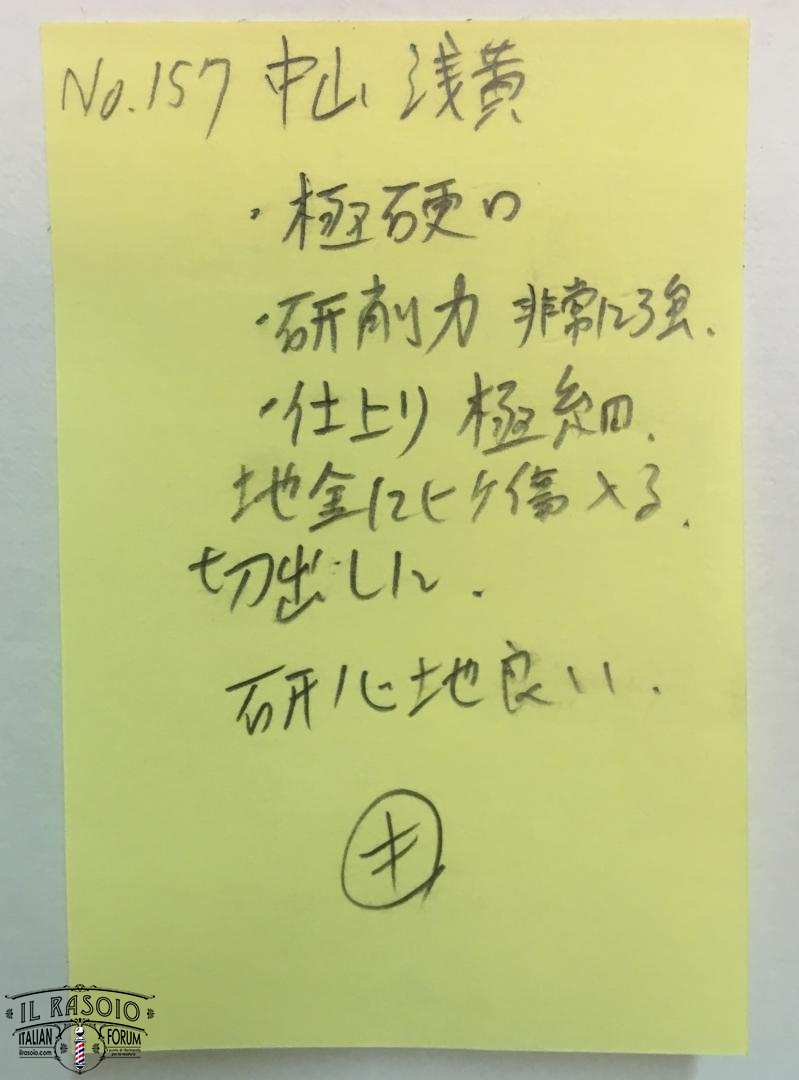 No.157 中山 浅黄
・極硬口
・研削力 非常に強.
・仕上り 極細.
地金にヒケ傷入る.
切出しに.
研心地良い.
キ
IL RASOIO
ITALIAN FORUM
ilrasoio.com